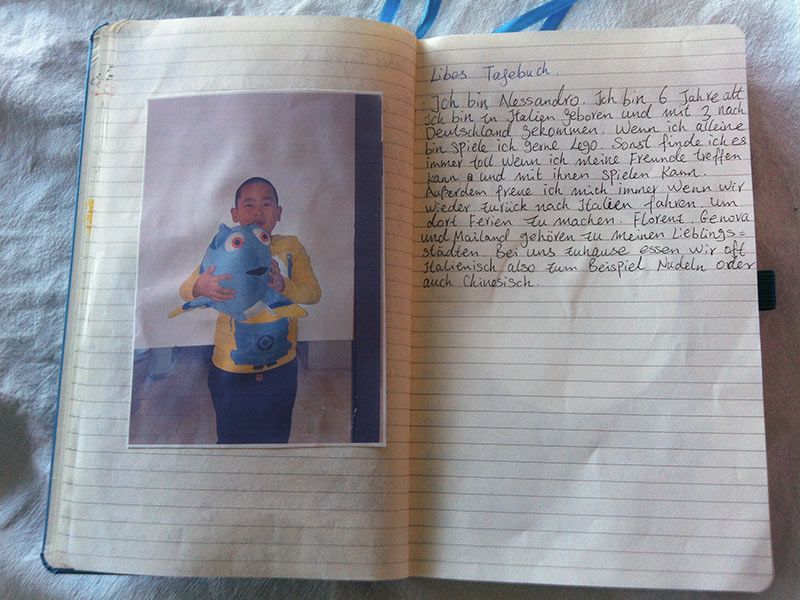 Libes Tagebuch.
Ich bin Alessandro. Ich bin 6 Jahre alt
Ich bin in Italien geboren und mit 3 nach
Deutschland gekommen. Wenn ich alleine
bin spiele ich gerne Lego. Sonst finde ich es
immer toll wenn ich meine Freunde treffen
kann und mit ihnen spielen kann.
Außerdem freue ich mich immer wenn wir
wieder zurück nach Italien fahren, um
dort Ferien zu machen. Florenz, Genova
und Mailand gehören zu meinen Lieblings=
städten. Bei uns zuhause essen wir oft
Italienisch also zum Beispiel Nudeln oder
auch Chinesisch.